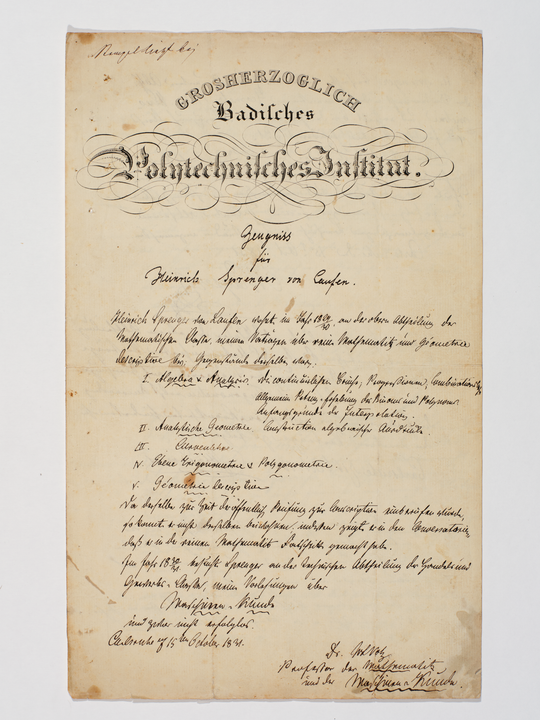 liegt bei
GROSHERZOGLICH
Badisches
Polytechnisches Institut.
Zeugniss
für
Heinrich Sprenger von Laufen.
Heinrich Sprenger von Laufen wohnte im Jahr 18 29/30 an der obern Abtheilung der
Mathematischen Classe, meinen Vorträgen über reine Mathematik und Géometrie
descriptive bei, Gegenstände derselben waren
I. Algebra & Analysis. Die continuirlichen Brüche, Progressionen, Combinationen
Allgemeine Potenz-Erhebung der Binome und Polynome
Anfangsgründe der Interpolation.
II. Analytische Geometrie. Construction algebraischer Ausdrücke.
III.
IV. Ebene Trigonometrie & Polygonometrie.
V. Géometrie descriptive
Da derselbe zur Zeit der öffentlichen Prüfung zur Conscription einberufen wurde,
so konnte er nicht derselben beiwohnen, indessen zeigte er in den Conversatorien
daß er in der reinen Mathematik Fortschritte gemacht habe.
Im Jahr 18 30/31 besuchte Sprenger an der technischen Abtheilung der Handels und
Gewerbs-Classe, meine Vorlesungen über
Maschinen-Kunde
und zwar nicht erfolglos.
Carlsruhe d 15ten October 1831.
Dr.
Professor der Mathematik
und der Maschinen Kunde.